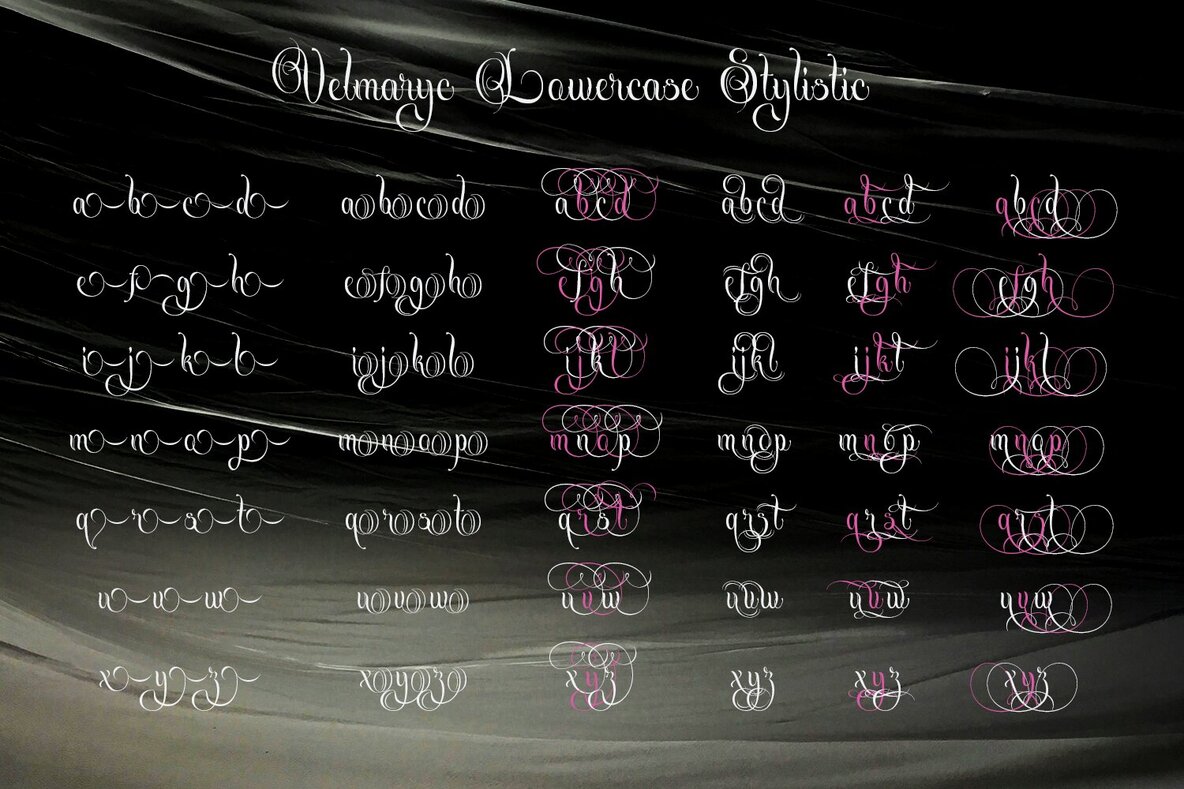 Velmaryc Lowercase Stylistic
a b c d a b c d a b c d a b c d a b c d a b c d
e f g h e f g h e f g h e f g h e f g h e f g h
i j k l i j k l i j k l i j k l i j k l i j k l
m n o p m n o p m n o p m n o p m n o p m n o p
q r s t q r s t q r s t q r s t q r s t q r s t
u v w u v w u v w u v w u v w u v w
x y z x y z x y z x y z x y z x y z